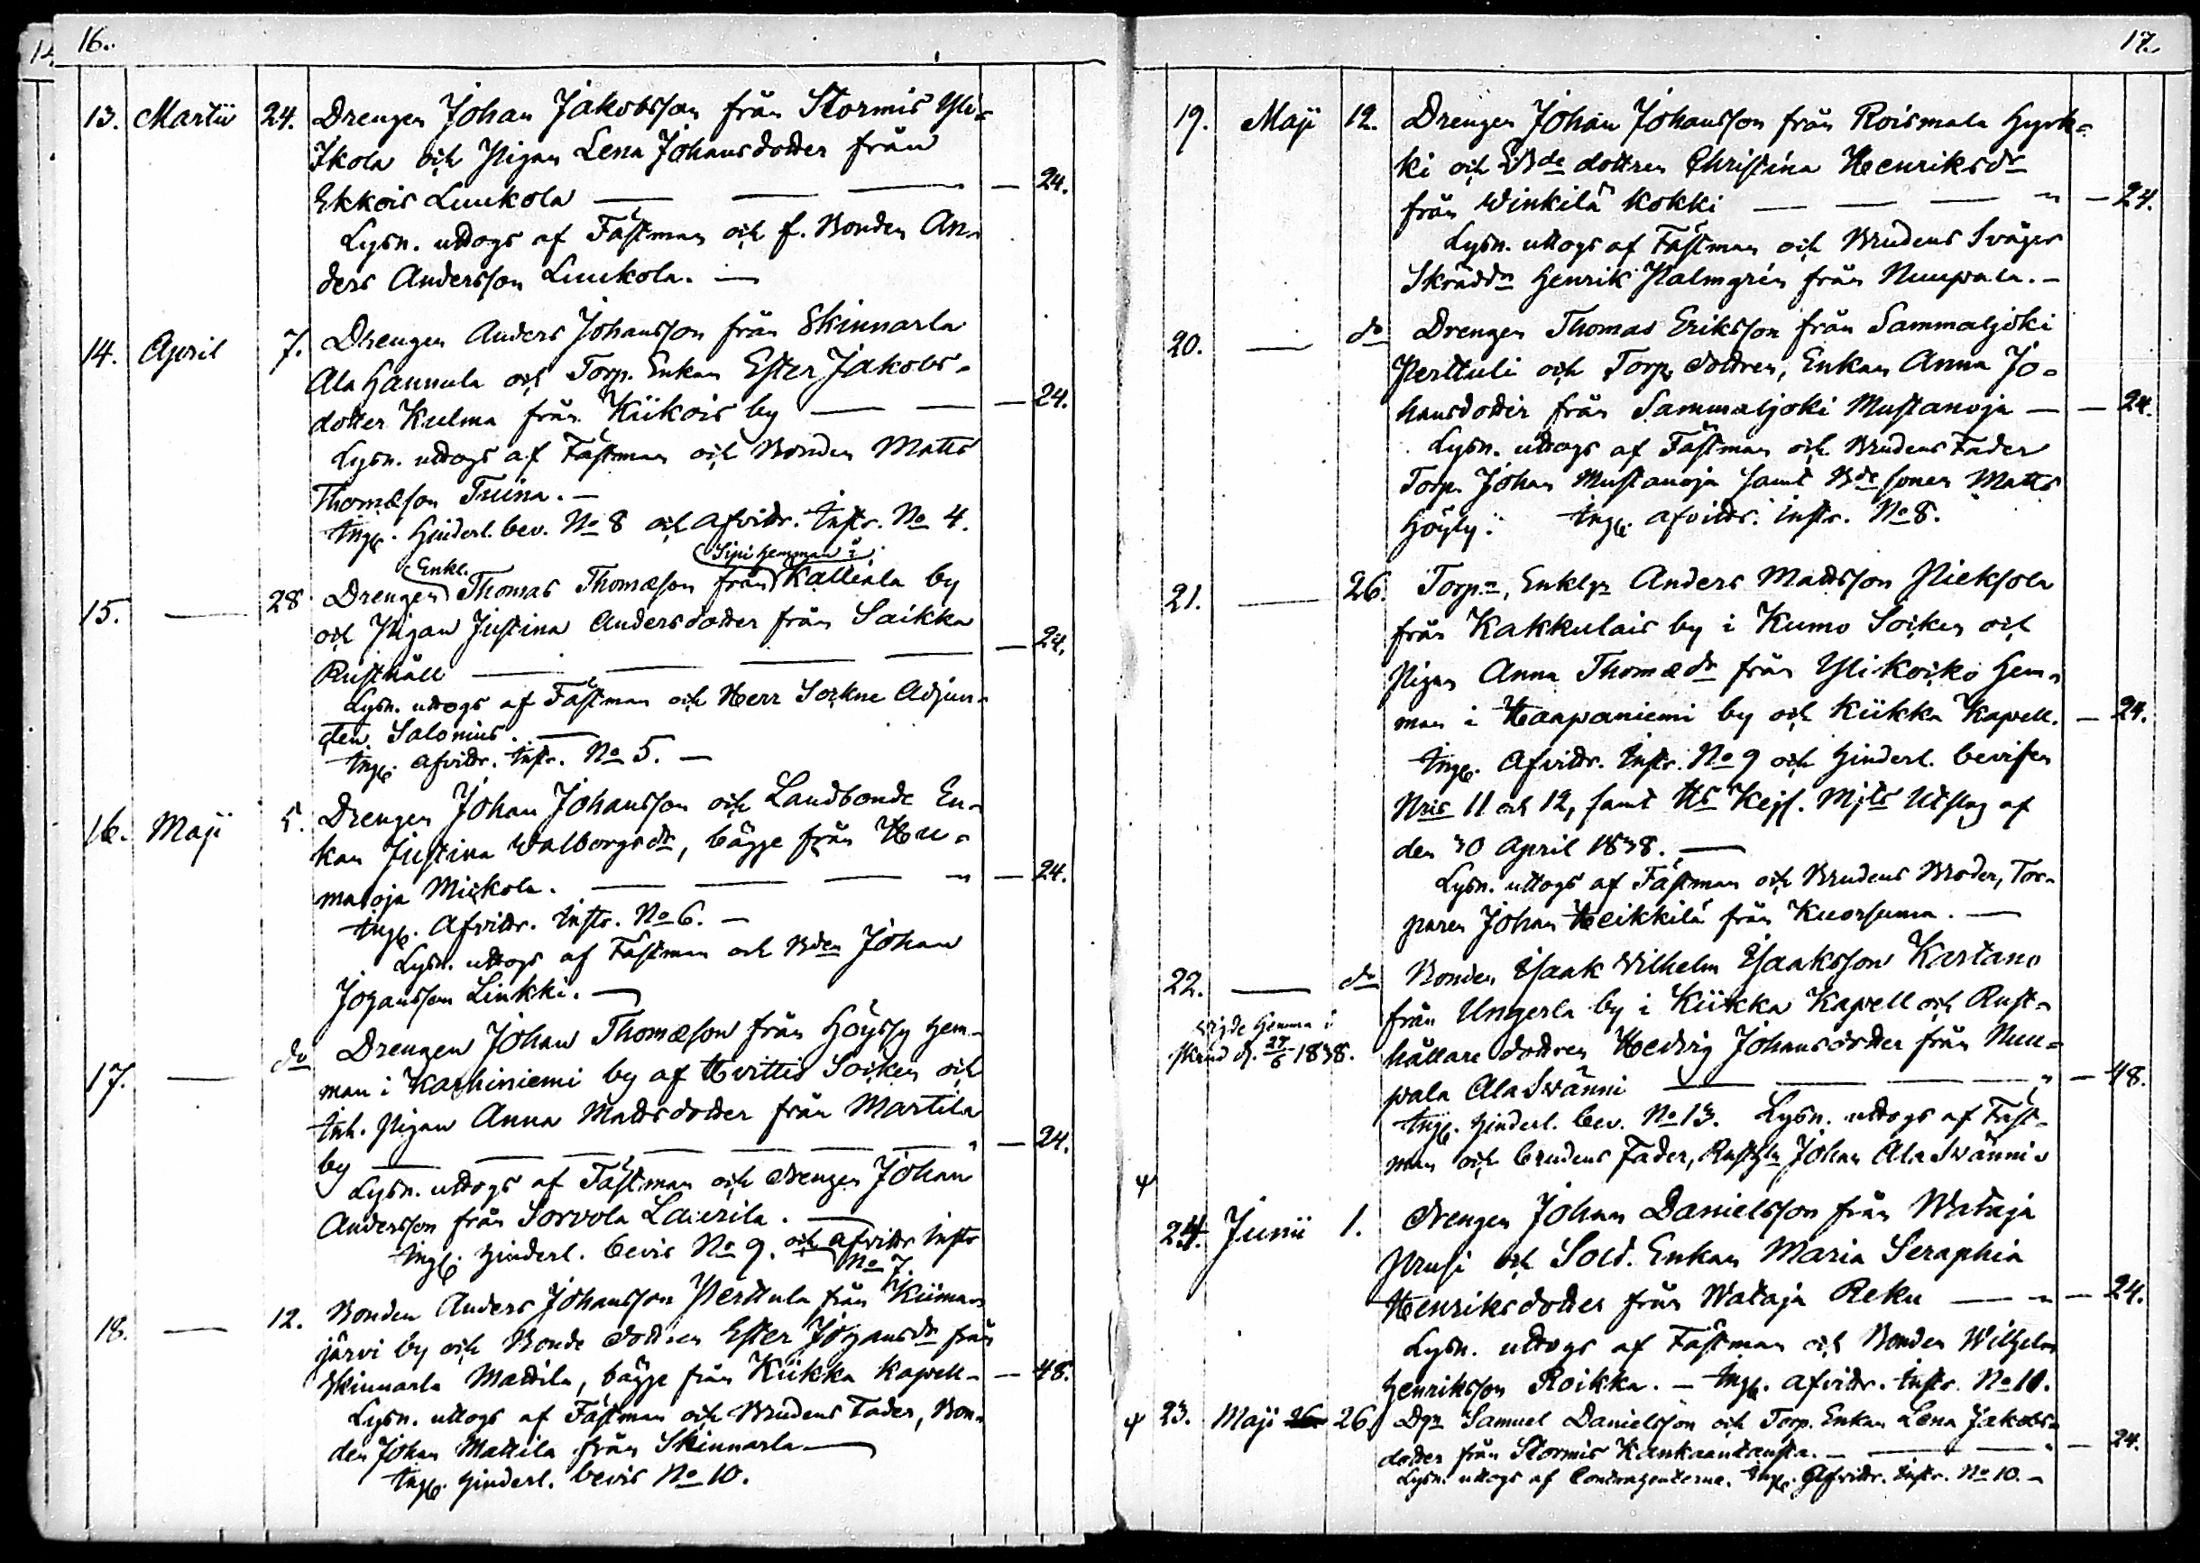 16.
13. Martii 24. Drengen Johan Jakobsson från Stormis Yli-
Skola och Pigan Lena Johansdotter från
Ekkois Luukola — — — — 24.
Lysn. uttogs af Fästman och f. Bonden An-
ders Andersson Luukola. —
14. April 7. Drengen Anders Johansson från Skinnarla
Ala Hannula och Torp. Enkan Ester Jakobs-
dotter Kulma från Kiikois by — — — 24.
Lysn. uttogs af Fästman och Bonden Matts
Thomæson Tuina. —
Ing. Hinderl. bev. No 8 och afvittr. Instr. No 4.
Enkl. Sipi Hemman i
15. — 28 Drengen Thomas Thomæson från Kalliala by
och Pigan Justina Andersdotter från Saikka
Rusthåll — — — — — 24.
Lysn. uttogs af Fästman och Herr Sockne Adjunc-
ten Salonius. —
Ing. afvittr. Instr. No 5. —
16. Maji 5. Drengen Johan Johansson och Landbonde En-
kan Justina Walborgsdr, bägge från Hu-
maloja Mickola. — — — " — 24.
Ing. Afvittr. Instr. No 6. —
Lysn. uttogs af Fästman och Bden Johan
Johansson Linkki. —
17. — do Drengen Johan Thomæson från Höyssy Hem-
man i Karhiniemi by af Hvittis Socken och
Inh. Pigan Anna Mattsdotter från Martila
by — — — — — — " — 24.
Lysn. uttogs af Fästman och Drengen Johan
Andersson från Sorvola Laurila. —
Ing. Hinderl. bevis No 9. och afvittr Instr
No 7.
18. — 12. Bonden Anders Johansson Perttula från Kiima-
järvi by och Bonde dottren Ester Johansdr från
Skinnarla Mattila, bägge från Kiikka Kapell — — 48.
Lysn. uttogs af Fästman och Brudens Fader, Bon-
den Johan Mattila från Skinnarla —
Ing. Hinderl. bevis No 10.
17.
19. Maji 12. Drengen Johan Johansson från Roismala Hyrk-
ki och Bde dottren Christina Henriksdr
från Winkilä Kokki — — — " — 24.
Lysn. uttogs af Fästman och Brudens Svåger
Skräddn Henrik Palmgrén från Nuupala. —
20. — do Drengen Thomas Eriksson från Sammaljoki
Perttuli och Torp. dottren, Enkan Anna Jo-
hansdotter från Sammaljoki Mustanoja — — 24.
Lysn. uttogs af Fästman och Brudens Fader
Torp. Johan Mustanoja samt Bde sonen Matts
Höyly. Ing. afvittr. Instr. No 8.
21. — 26. Torpn, Enkl. Anders Mattsson Pieksola
från Kakkulais by i Kumo Socken och
Pigan Anna Thomædr från Ylikoiko Hem-
man i Haapaniemi by och Kiikka Kapell. — 24.
Ing. Afvittr. Instr. No 9 och Hinderl. bevisen
Nris 11 och 12, samt Hs Kejs. Mjts Utslag af
den 30 April 1838. —
Lysn. uttogs af Fästman och Brudens Broder, Tor-
paren Johan Heikkilä från Kuorsuma. —
22. — do Bonden Isaak Wilhelm Isaksson Kartano
från Ungerla by i Kiikka Kapell och Rust-
hållare dottren Hedvig Johansdotter från Nuu-
pala Ala Swänni — — — " — 48.
Ing. Hinderl. bev. No 13. Lysn. uttogs af Fäst-
man och brudens Fader, Rusth. Johan Ala Swänni.
d. 27/6 1838.
24. Junii 1. Drengen Johan Danielsson från Wataja
Prusi och Sold. Enkan Maria Seraphia
Henriksdotter från Wataja Reku — " — 24.
Lysn. uttogs af Fästman och Bonden Wilhelm
Henriksson Roikka. — Ing. afvittr. Instr. No 11.
23. Maji 26 26. Dgn Samuel Danielsson och Torp. Enkan Lena Jakobs-
dotter från Stormis Kankaantausta. — — " — 24.
Lysn. uttogs af Contrahenterne. Ing. Afvittr. Instr. No 10. —